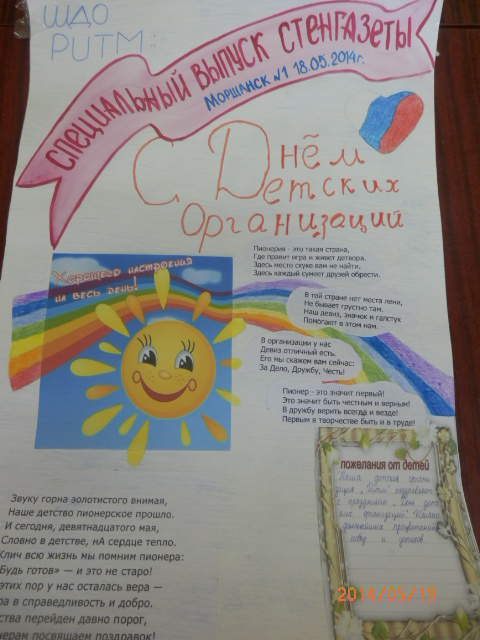 ШДО
РИТМ:
СПЕЦИАЛЬНЫЙ ВЫПУСК СТЕНГАЗЕТЫ
МОРШАНСК №1 18.05.2014г.
С Днём
Детских
Организаций
Хорошего настроения
на весь день!
Пионерия - это такая страна,
Где правит игра и живет детвора.
Здесь место скуке вам не найти,
Здесь каждый сумеет друзей обрести.
В той стране нет места лени,
Не бывает грустно там.
Наш девиз, значок и галстук
Помогают в этом нам.
В организации у нас
Девиз отличный есть.
Его мы скажем вам сейчас:
За Дело, Дружбу, Честь!
Пионер - это значит первый!
Это значит быть честным и верным!
В дружбу верить всегда и везде!
Первым в творчестве быть и в труде!
пожелания от детей
Наша
"Ритм" поздравляет
с праздником "День
организаций".
процветания
и успехов
Звуку горна золотистого внимая,
Наше детство пионерское прошло.
И сегодня, девятнадцатого мая,
Словно в детстве, нА сердце тепло.
Клич всю жизнь мы помним пионера:
Будь готов» — и это не старо!
этих пор у нас осталась вера —
ра в справедливость и добро.
ства перейден давно порог,
нерам посвящаем поздравок!
2014/05/19